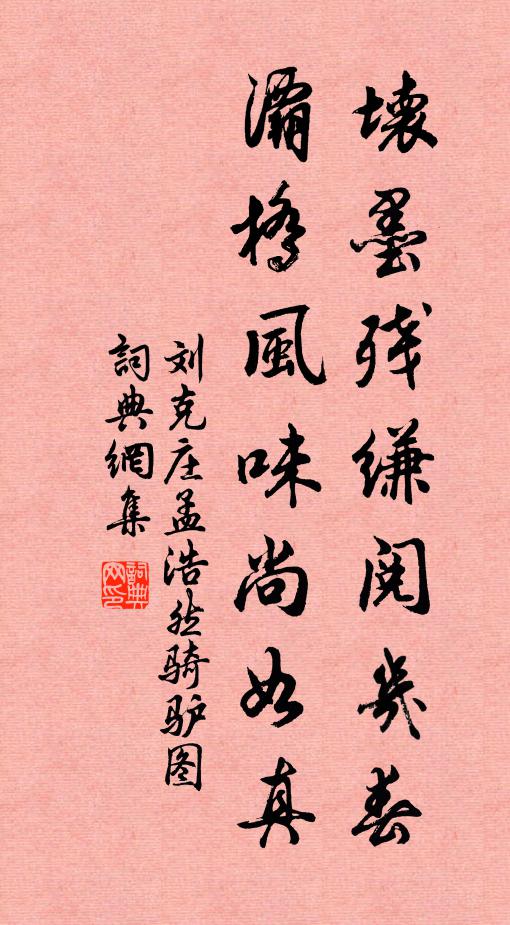 壞墨残縑閱幾春
灞橋風味尚如真
刘克庄孟浩然骑驴图
詞典網集
詞典
网印